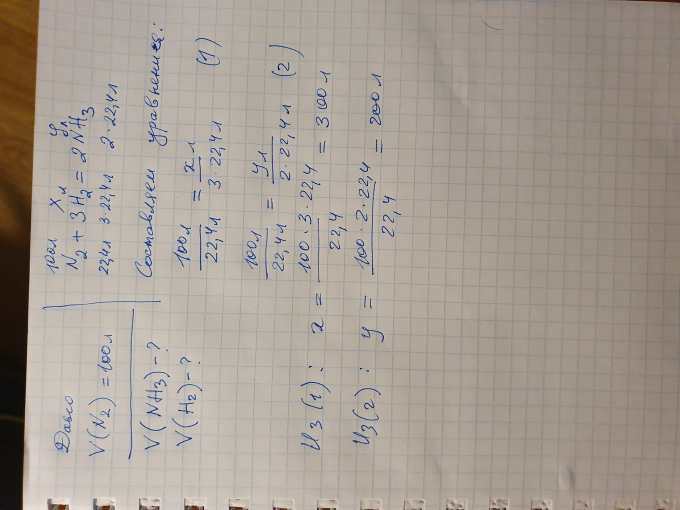 Дано
V(N₂) = 100л
V(NH₃)-?
V(H₂)-?
100л xл yл
N₂ + 3H₂ = 2NH₃
22,4л 3·22,4л 2·22,4л
Составляем уравнение:
100л/22,4л = xл/3·22,4л (1)
100л/22,4л = yл/2·22,4л (2)
Из(1): x = 100·3·22,4/22,4 = 300л
Из(2): y = 100·2·22,4/22,4 = 200л